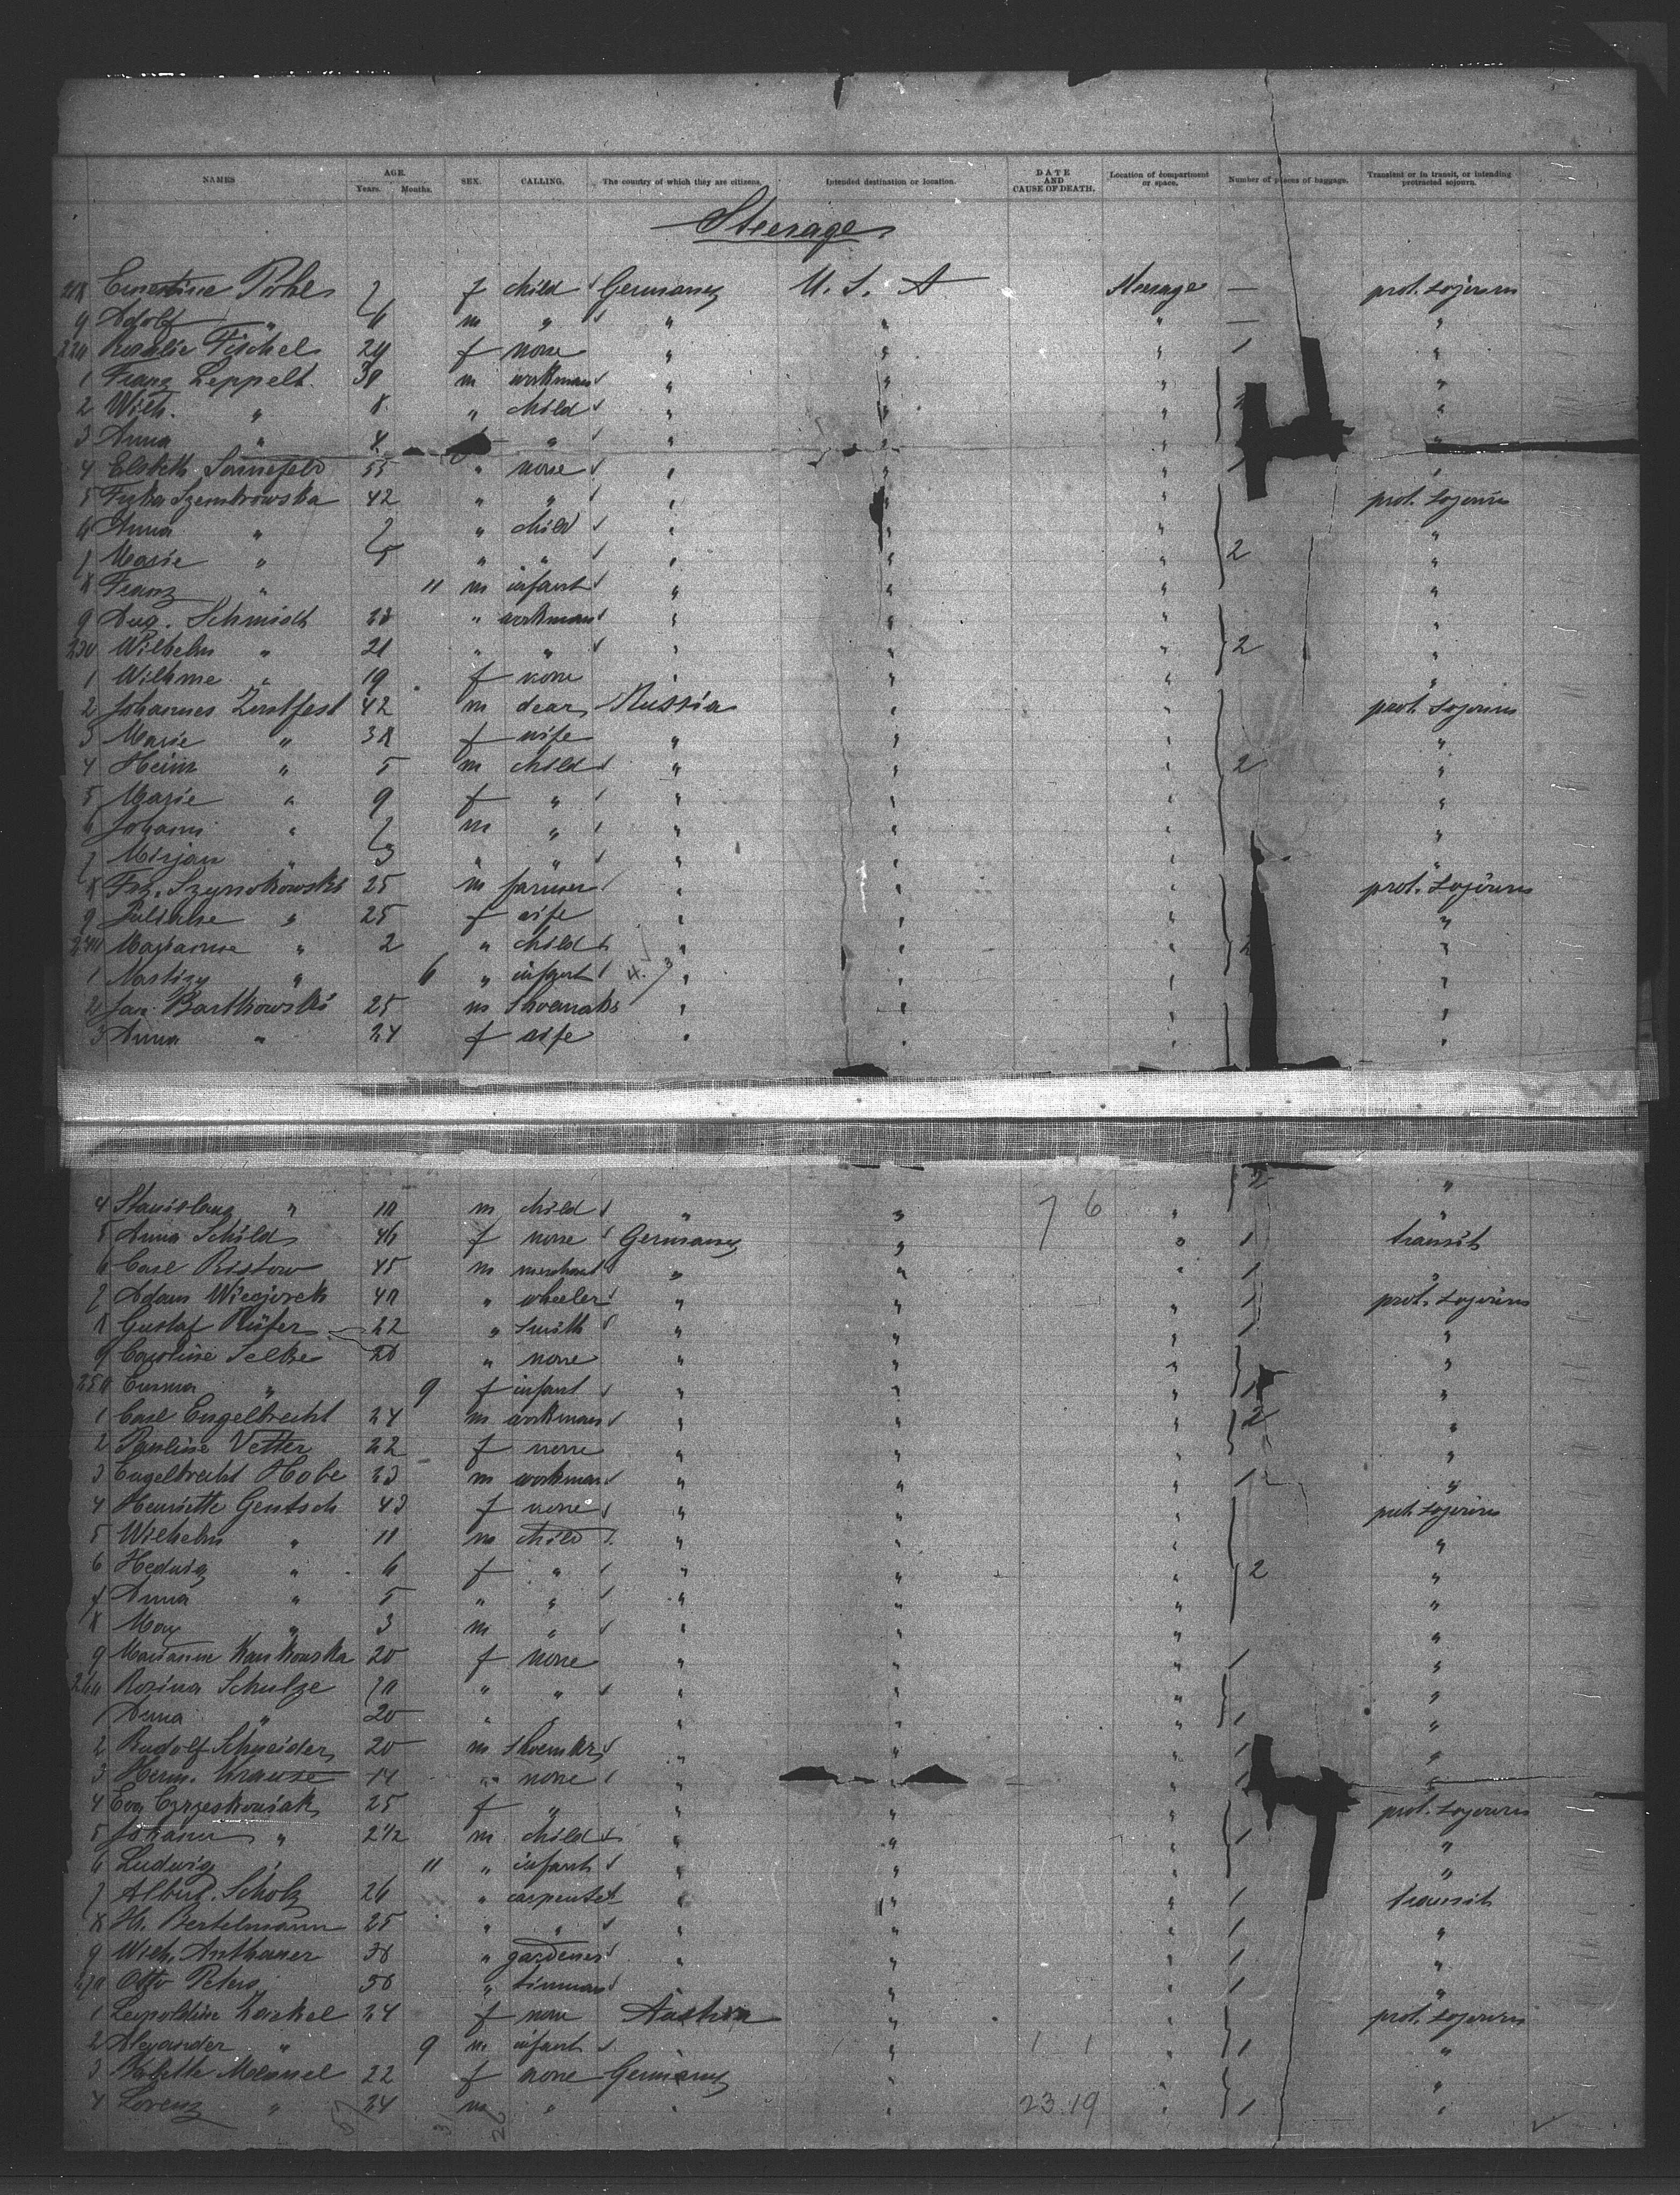 NAMES AGE. Years. Months. SEX. CALLING. The country of which they are citizens. Intended destination or location. DATE AND CAUSE OF DEATH. Location of compartment or space. Number of pieces of baggage. Transient or in transit, or intending protracted sojourn.
Steerage
Ernestine Pohl 7 f child Germany U. S. A Steerage — prot. sojourn
9 Adolf " 6 m " " " " — "
Rosalie Fischel 29 f none " " " 1 "
1 Franz Leppelt 38 m workman " " " "
2 Wilh. " 8 " child " " " "
3 Anna " 4 " " " " "
4 Elsbeth Sonnefeld 55 " none " " " "
5 Szembrowska 42 " " " " " prot. sojourn
6 Anna " 7 " child " " " "
7 Marie " 5 " " " " " 2 "
8 Franz " 11 m infant " " " "
9 Aug. Schmidt 28 " workman " " " "
230 Wilhelm " 21 " " " " " 2 "
1 Wilhme " 19 f none " " " "
2 Johannes 42 m Russia " " prot. sojourn
3 Marie " 38 f wife " " " "
4 Heinr " 5 m child " " " 2 "
5 Marie " 9 f " " " " "
6 Johann " 7 m " " " " "
7 Mirjan " 3 " " " " " "
8 Frz. 25 m farmer " " " prot. sojourn
9 Julianne " 25 f wife " " " "
240 Marianne " 2 " child " " " 2 "
1 " 6 " infant " " " "
2 Jan Bartkowski 25 m Shoemaker " " " "
3 Anna " 24 f wife " " " "
2 "
4 Stanislaus " 10 m child " " 7 6 " "
5 Anna Schild 46 f none Germany " " 1 transit
6 Carl Ristow 45 m merchant " " " 1 "
7 Adam Wieczorek 40 " wheeler " " " 1 prot. sojourn
8 Gustaf Küfer 22 " smith " " " 1 "
9 Caroline Selke 28 " none " " " "
250 Emma " 9 f infant " " " 1 "
1 Carl Engelbrecht 24 m workman " " " 2 "
2 Pauline Vetter 22 f none " " " "
3 Engelbrecht Hobe 23 m workman " " " 1 "
4 Henriette Gentsch 43 f none " " " prot. sojourn
5 Wilhelm " 11 m child " " " "
6 Hedwig " 6 f " " " " 2 "
7 Anna " 5 " " " " " "
8 Max " 3 m " " " " "
9 Marianne Kankowska 20 f none " " " 1 "
260 Rosina Schulze 70 " " " " " "
1 Anna " 20 " " " " " 1 "
2 Rudolf Schneider 20 m shoemkr " " " 1 "
3 Herm. Krause 14 " none " " " 1 "
4 Eva 25 f " " " " prot. sojourn
5 Johann " 2 1/2 m child " " " 1 "
6 Ludwig " 11 " infant " " " "
7 Albert Scholz 26 " carpenter " " " 1 transit
8 Hr. Bertelmann 25 " " " " " 1 "
9 Wilh. Anthauer 38 " gardener " " " 1 "
270 Otto Peters 50 " tinman " " " 1 "
1 Leopoldine 24 f none Austria " " prot. sojourn
2 Alexander " 9 m infant " 1 1 " 1 "
3 Babette Mensel 22 f none Germany " " "
4 Lorenz " 24 m " " " 23 19 " 1 "